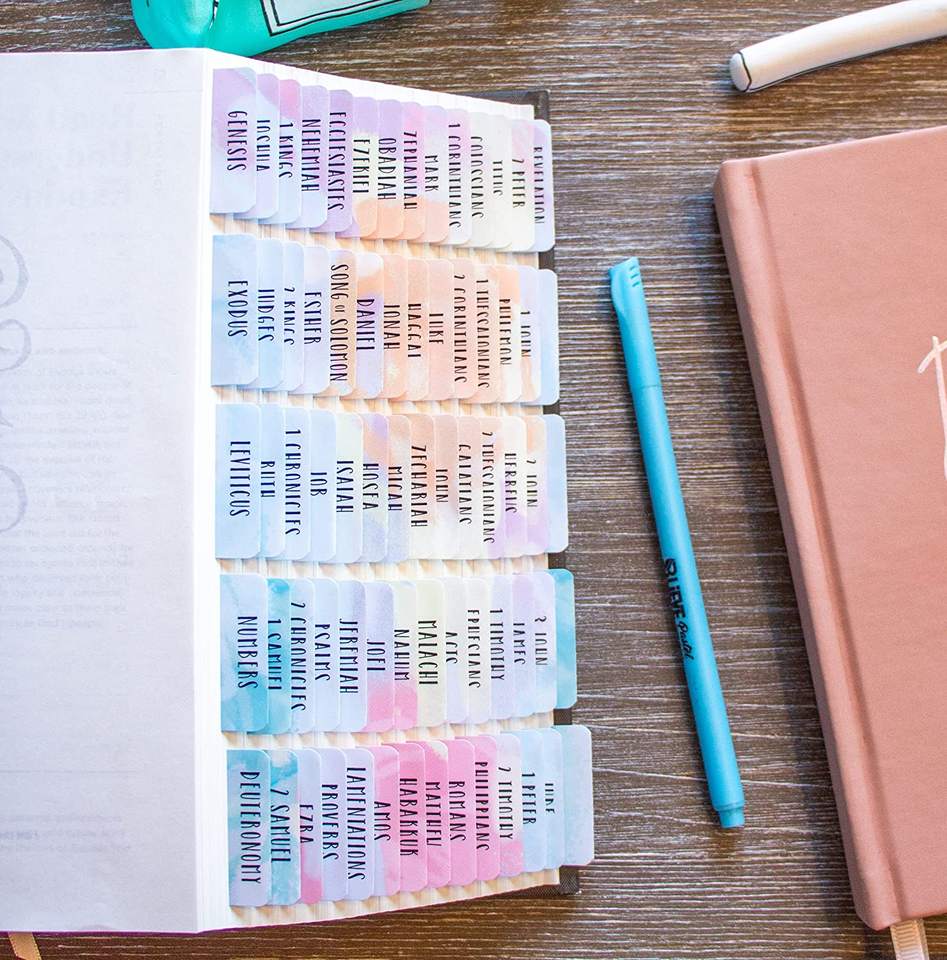 GENESIS
JOSHUA
1 KINGS
NEHEMIAH
ECCLESIASTES
EZEKIEL
OBADIAH
ZEPHANIAH
MARK
1 CORINTHIANS
COLOSSIANS
TITUS
2 PETER
REVELATION
EXODUS
JUDGES
2 KINGS
ESTHER
SONG OF SOLOMON
DANIEL
JONAH
HAGGAI
LUKE
2 CORINTHIANS
1 THESSALONIANS
PHILEMON
1 JOHN
LEVITICUS
RUTH
1 CHRONICLES
JOB
ISAIAH
HOSEA
MICAH
ZECHARIAH
JOHN
GALATIANS
2 THESSALONIANS
HEBREWS
2 JOHN
NUMBERS
1 SAMUEL
2 CHRONICLES
PSALMS
JEREMIAH
JOEL
NAHUM
MALACHI
ACTS
EPHESIANS
1 TIMOTHY
JAMES
3 JOHN
DEUTERONOMY
2 SAMUEL
EZRA
PROVERBS
LAMENTATIONS
AMOS
HABAKKUK
MATTHEW
ROMANS
PHILIPPIANS
2 TIMOTHY
1 PETER
JUDE
LIEVE Pastel